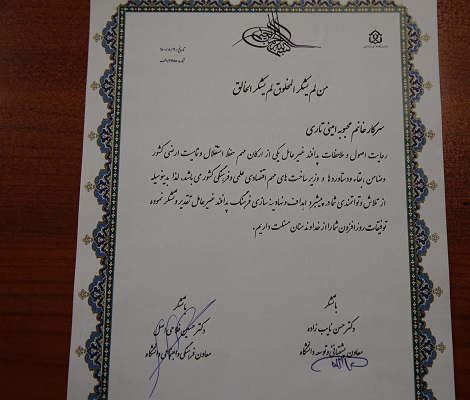 من لم یشکر المخلوق لم یشکر الخالق
سرکار خانم محبوبه امینی تاری
رعایت اصول و ملاحظات پدافند غیرعامل یکی از ارکان مهم حفظ استقلال و تمامیت ارضی کشور
وضامن ارتقاء دستاوردها و زیرساخت های مهم اقتصادی علمی و فرهنگی کشور می باشد، لذا بدینوسیله
از تلاش و توانمندی شما در پیشبرد اهداف و نهادینه سازی فرهنگ پدافند غیرعامل تقدیر و تشکر نموده
توفیقات روزافزون شما را از خداوند منان مسئلت داریم.
با تشکر
دکتر حسن نایب زاده
معاون پشتیبانی و توسعه دانشگاه
با تشکر
دکتر حسین فلاحی اصل
معاون فرهنگی و اجتماعی دانشگاه